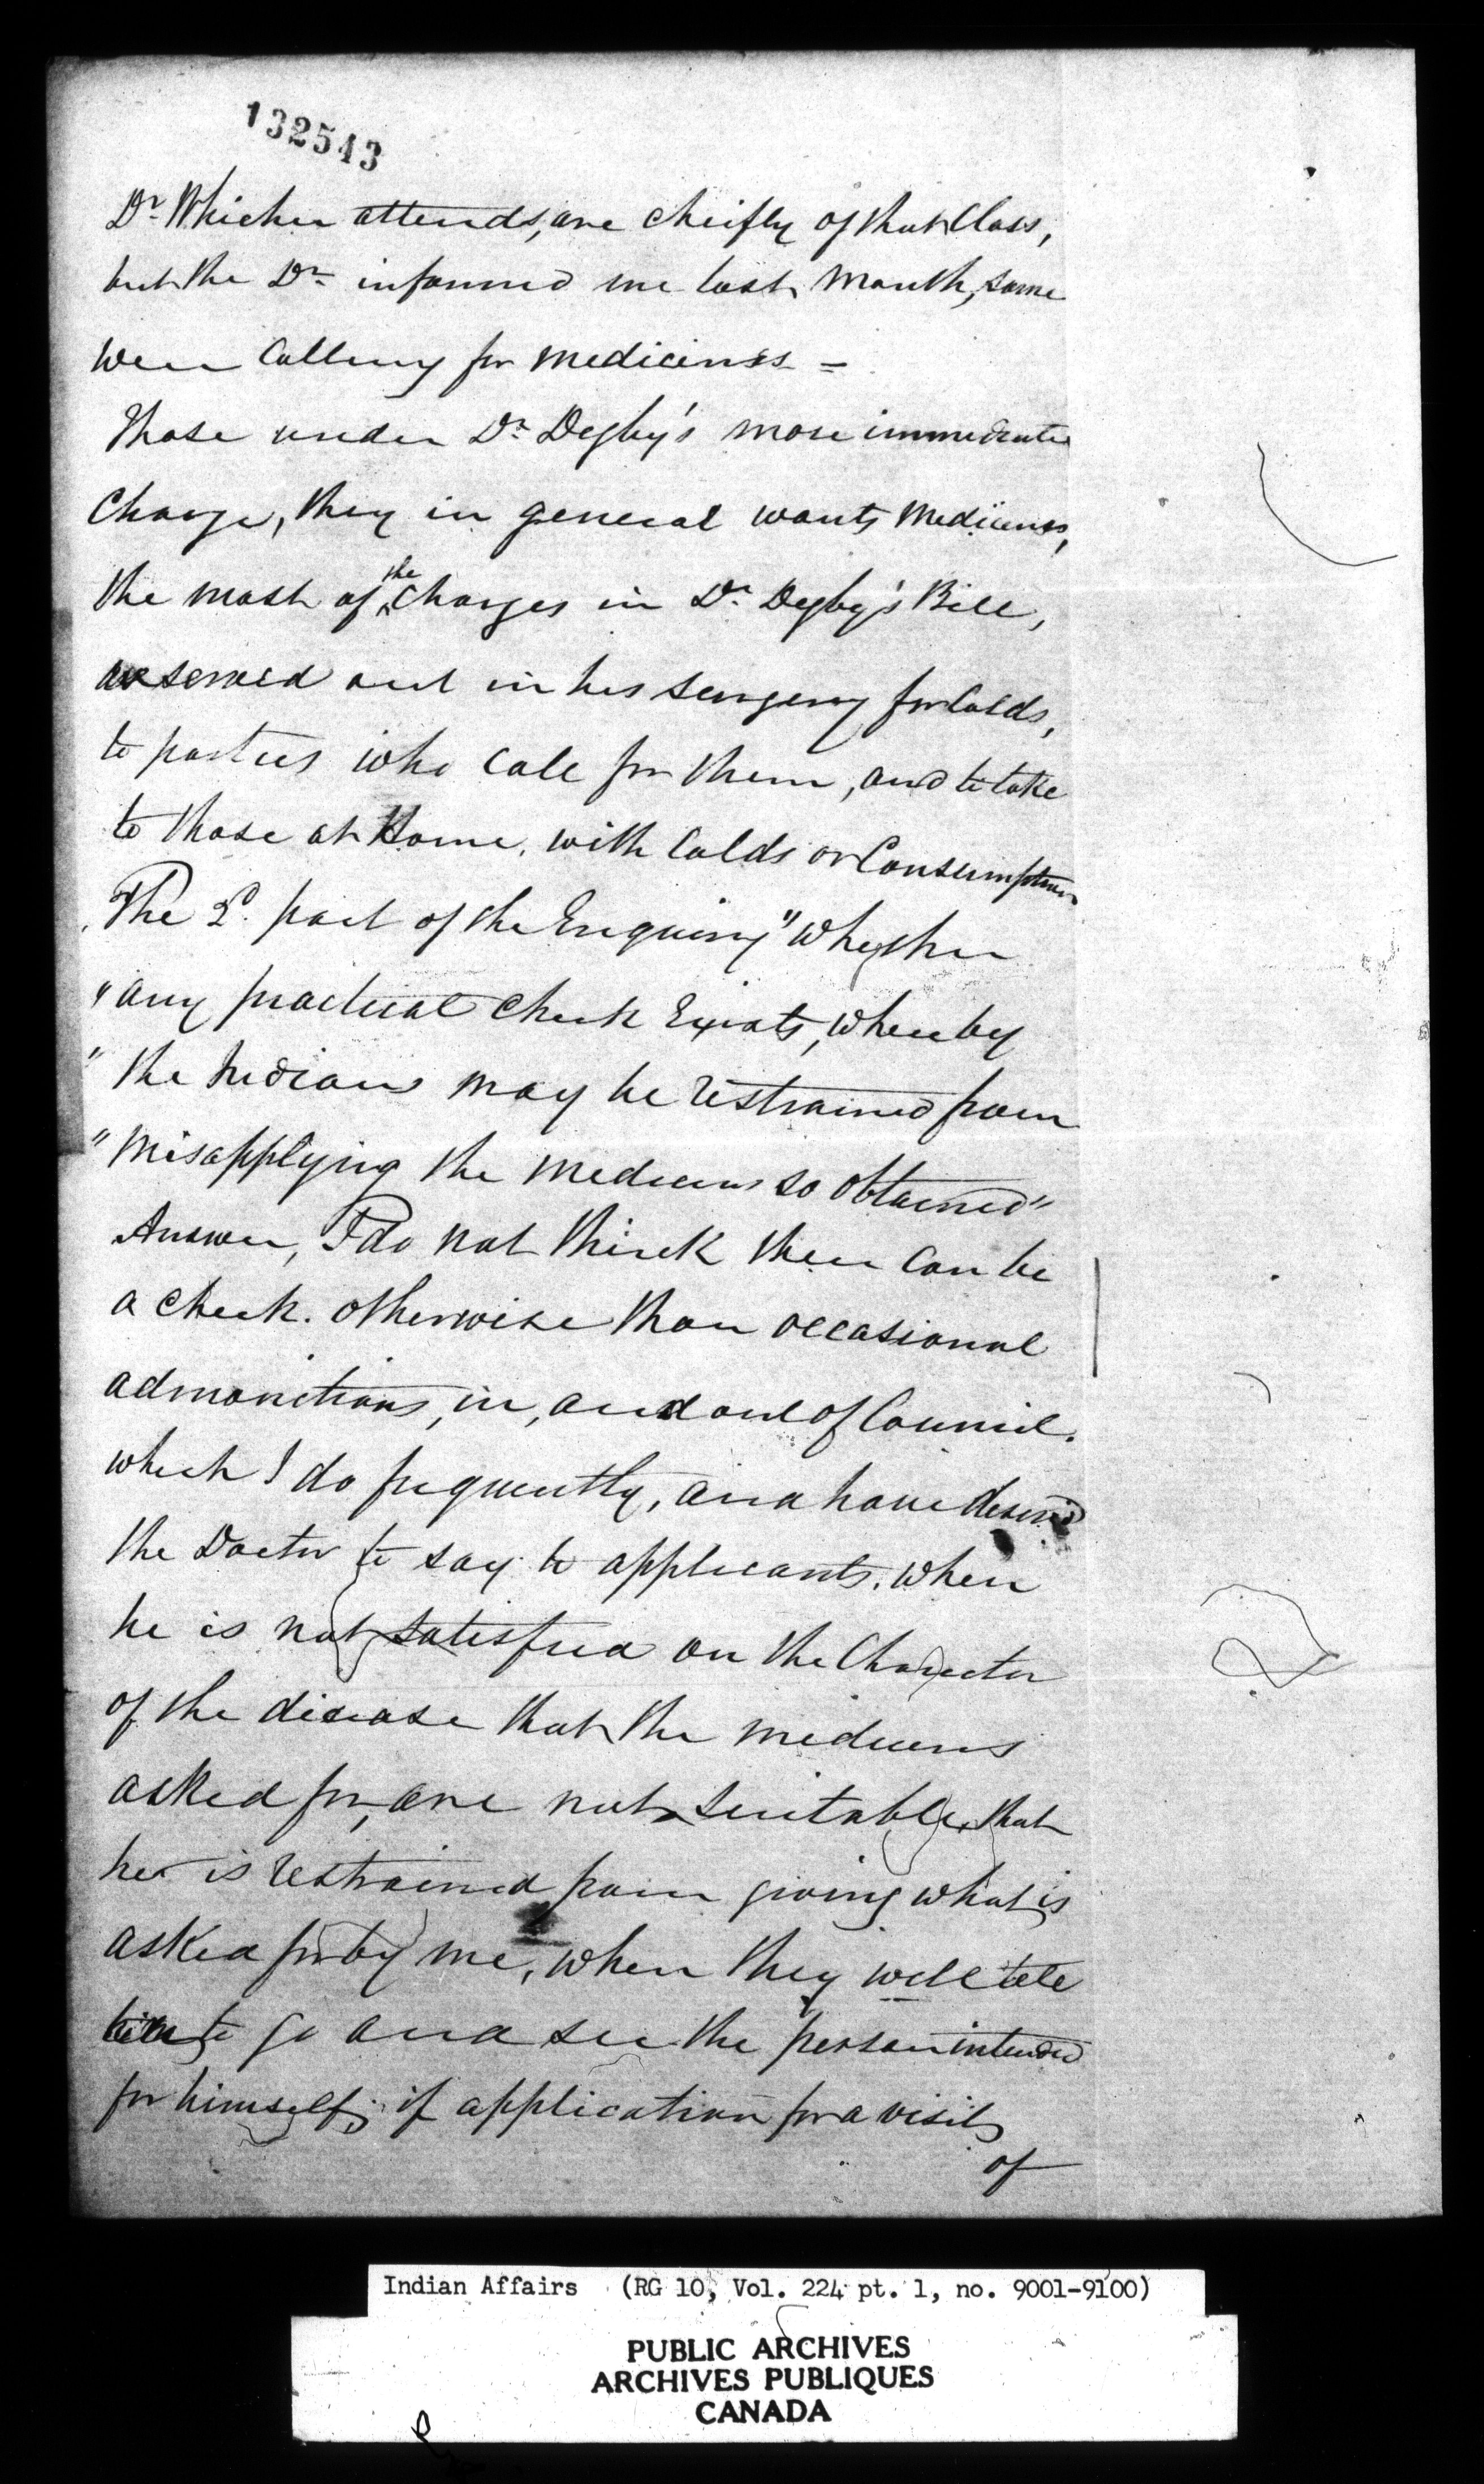 132543
Dr. Whicher attends, are cheifly of that Class,
but the Dr. informed me last month, some
were Calling for medicines =
Those under Dr. Digby's more immediate
Charge, they in general wants Medicines,
the most of the Charges in Dr. Digby's Bill,
are served out in his surgery for Colds,
to parties who Call for them, and to take
to those at Home, with Colds or Consumption
The 2d. part of the Enquiry "Whether
"any practical Check Exists, whereby
"the Indians may be restrained from
"misapplying the medicines so obtained"
Answer, I do not think there Can be
a Check. otherwise than occasional
admonitions, in, and out of Council.
which I do frequently, and have desired
the Doctor to say to applicants, when
he is not satisfied on the Charecter
of the disease that the medicines
asked for, are not suitable, that
he is restrained from giving what is
asked for by me, when they will tell
him to go and see the person intended
for himself; if application for a visit
of
Indian Affairs (RG 10, Vol. 224 pt. 1, no. 9001-9100)
PUBLIC ARCHIVES
ARCHIVES PUBLIQUES
CANADA